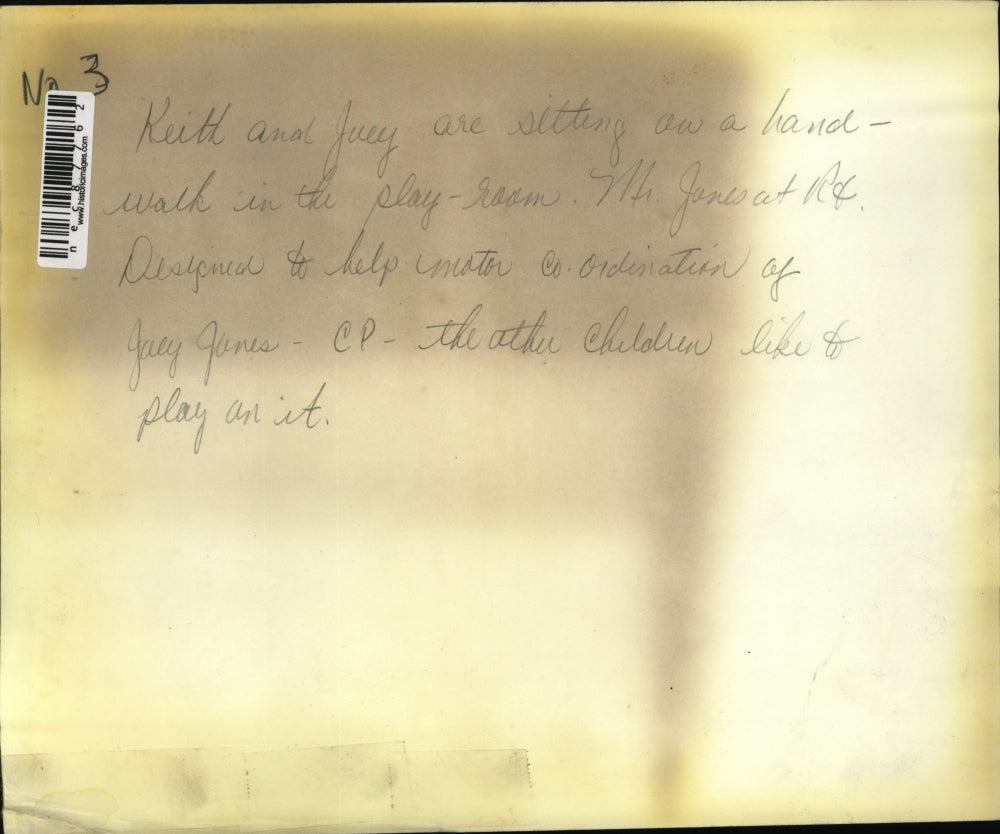 No 3
Keith and Joey are sitting on a hand-
walk in the play-room. Mr. Jones at Rt.
Designed to help motor co-ordination of
Joey Jones - CP - the other children like to
play on it.
www.historicimages.com